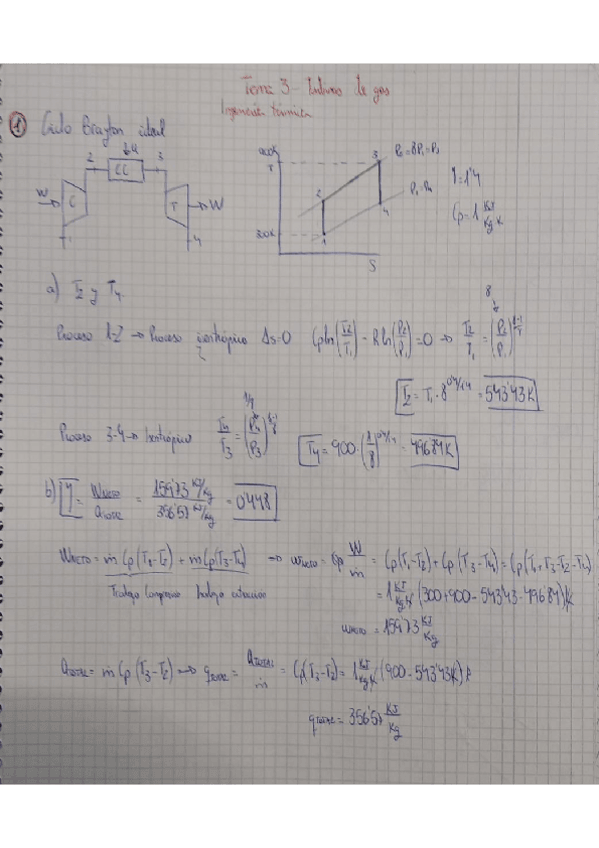 Tema 3 - Turbinas de gas
Ingeniería térmica
1 Ciclo Brayton ideal
2 CC 3 Q
W C T W
1 4
900K T 3 P2=8P1=P3
2 P1=P4
4
300K 1
S
γ=1'4
Cp=1 KJ/Kg·K
a) T2 y T4
Proceso 1-2 → Proceso isentrópico Δs=0 Cp ln(T2/T1) - R ln(P2/P1) = 0 → T2/T1 = (P2/P1)^(γ-1/γ) 8
T2 = T1 · 8^(0'4/1'4) = 543'43K
Proceso 3-4 → Isentrópico T4/T3 = (P4/P3)^(γ-1/γ) 1/8 T4 = 900 · (1/8)^(0'4/1'4) = 496'84K
b) η = WNETO/QTOTAL = 159'73 KJ/Kg / 356'57 KJ/Kg = 0'448
WNETO = ṁ Cp (T1-T2) + ṁ Cp (T3-T4) → wNETO = W/ṁ = Cp(T1-T2) + Cp (T3-T4) = Cp(T1+T3-T2-T4)
Trabajo compresor Trabajo
= 1 KJ/Kg·K (300+900-543'43-496'84) K
wNETO = 159'73 KJ/Kg
QTOTAL = ṁ Cp (T3-T2) → qTOTAL = QTOTAL/ṁ = Cp(T3-T2) = 1 KJ/Kg·K (900-543'43K) K
qTOTAL = 356'57 KJ/Kg